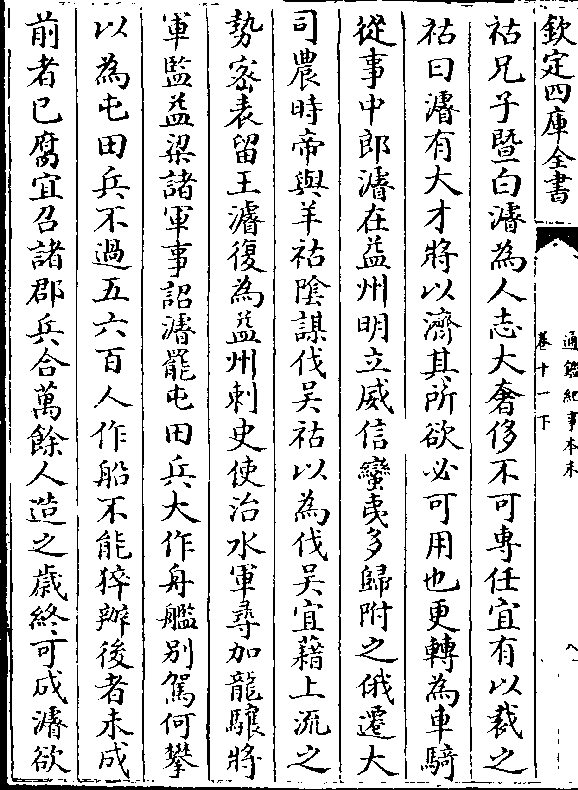 欽定四庫全書
通鑑紀事本末
卷十一下
八
祜兄子暨白濬為人志大奢侈不可專任宜有以裁之
祜曰濬有大才將以濟其所欲必可用也更轉為車騎
從事中郎濬在益州明立威信蠻夷多歸附之俄遷大
司農時帝與羊祜陰謀伐吳祜以為伐吳宜藉上流之
勢密表留王濬復為益州刺史使治水軍尋加龍驤將
軍監益梁諸軍事詔濬罷屯田兵大作舟艦別駕何攀
以為屯田兵不過五六百人作船不能猝辦後者未成
前者已腐宜召諸郡兵合萬餘人造之歲終可成濬欲